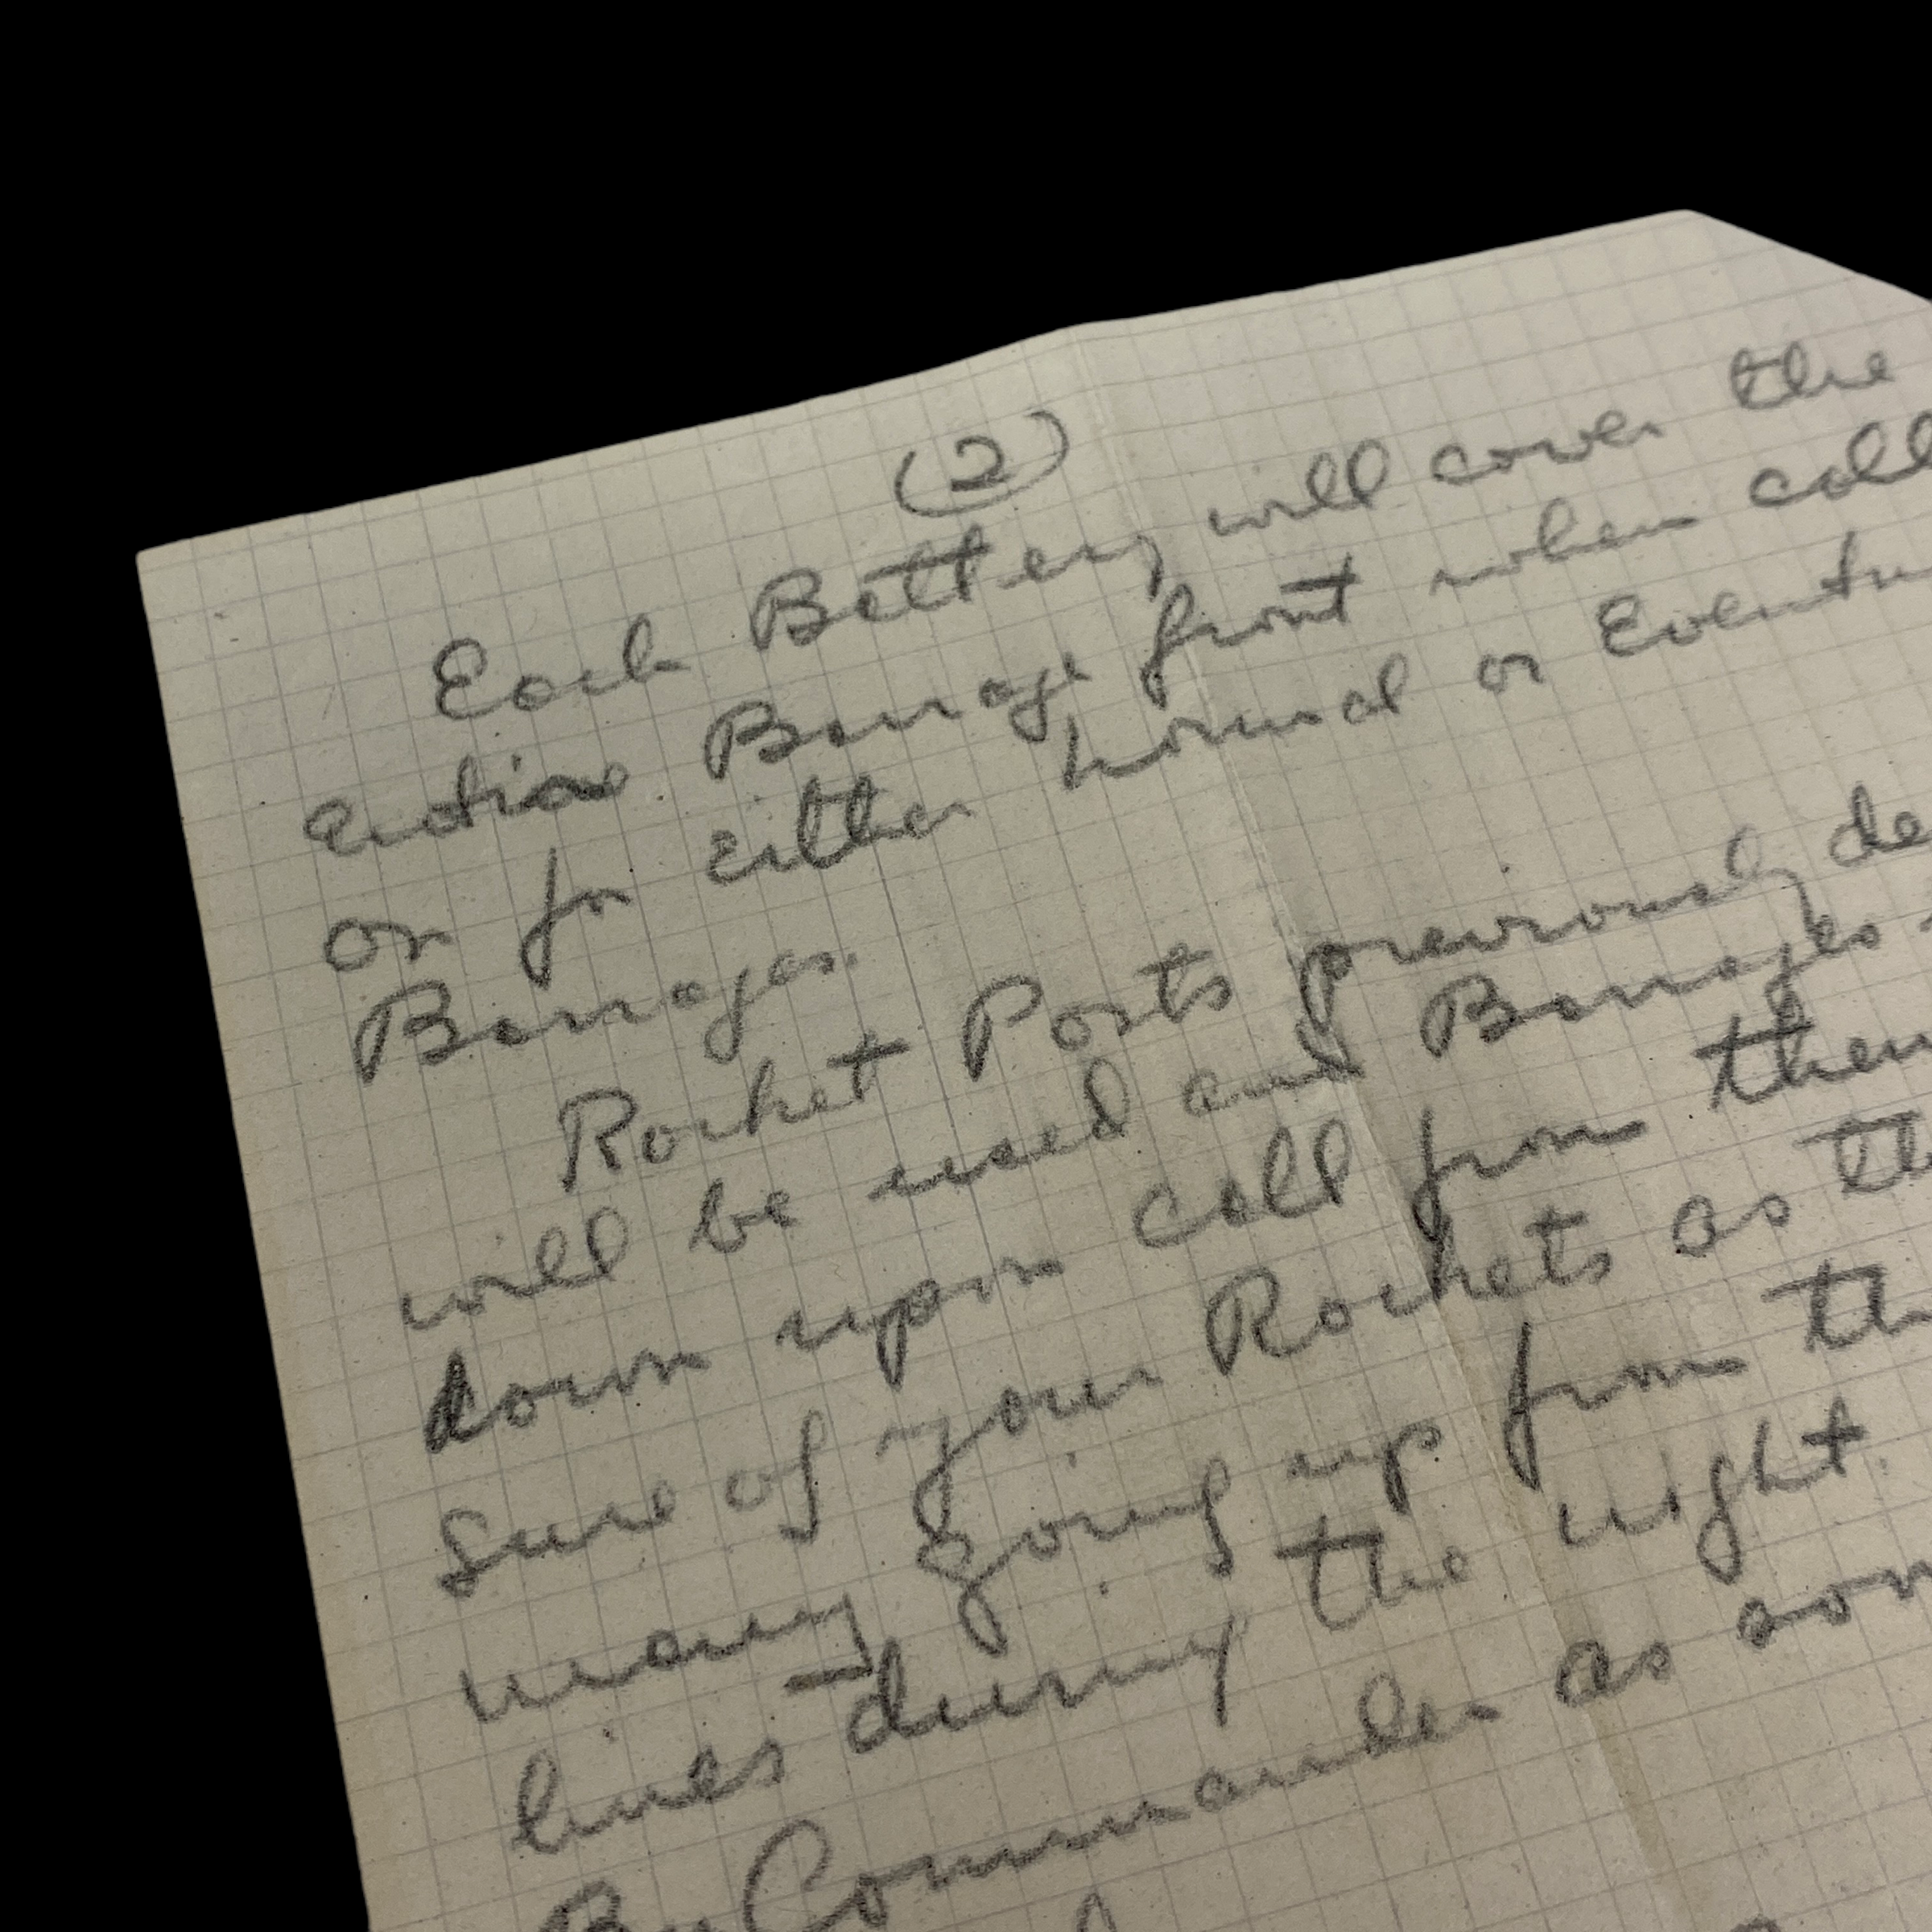 (2)
Each Battery will cover the
entire Barrage front when call
on for either normal or Eventu
Barrages.
Rocket Posts previously de
will be used and Barrages
down upon call from them
Sure of your Rockets as th
many going up from th
lines during the night.
By Commander as soon